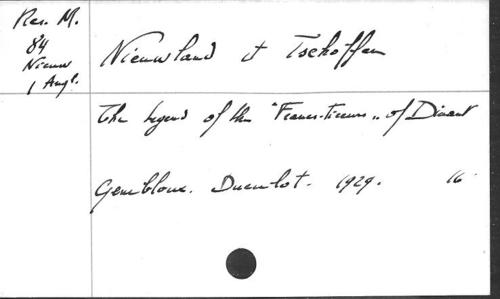 Res. M.
84
Nieuw
1 Angl.
Nieuwland et Tschoffen
The legend of the "Francs-tireurs„ of Dinant
Gembloux. Duculot. 1929. 16